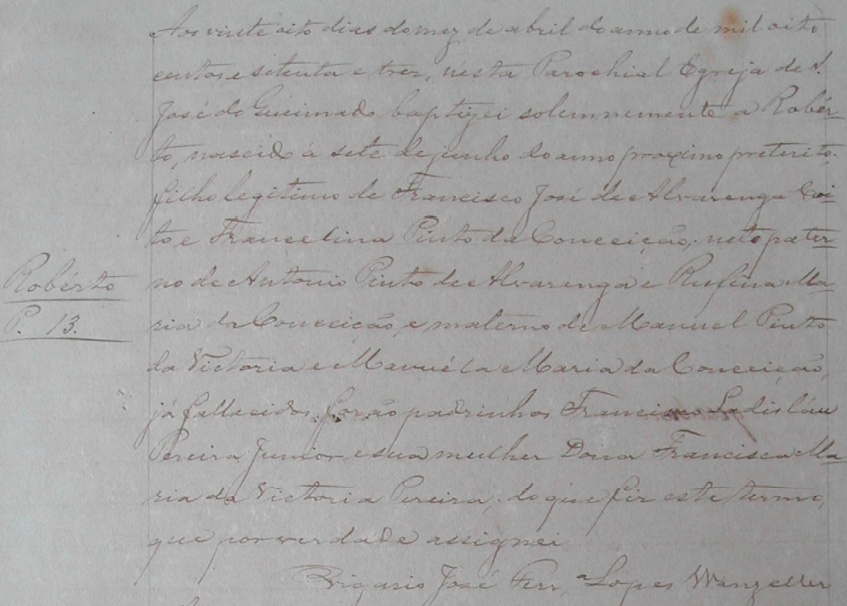 Aos vinte oito dias do mez de abril do anno de mil oito
centos e setenta e trez, nesta Parochial Egreja de S.
José do Queimado baptizei solemnemente a Robér-
to, nascido á sete de junho do anno proximo preterito,
filho legitimo de Francisco José de Alvarenga
to e Francelina Pinto da Conceição, neto pater-
Robérto
P. 13.
no de Antonio Pinto de Alvarenga e Rufina Ma-
ria da Conceição, e materno de Manuel Pinto
da Victoria e Manuéla Maria da Conceição,
já fallecidos; forão padrinhos Francisco Ladisláu
Pereira Junior e sua mulher Dona Francisca Ma-
ria da Victoria Pereira; do que fiz este termo,
que por verdade assignei
Vigario José Ferr.ª Lopes Wanzeller